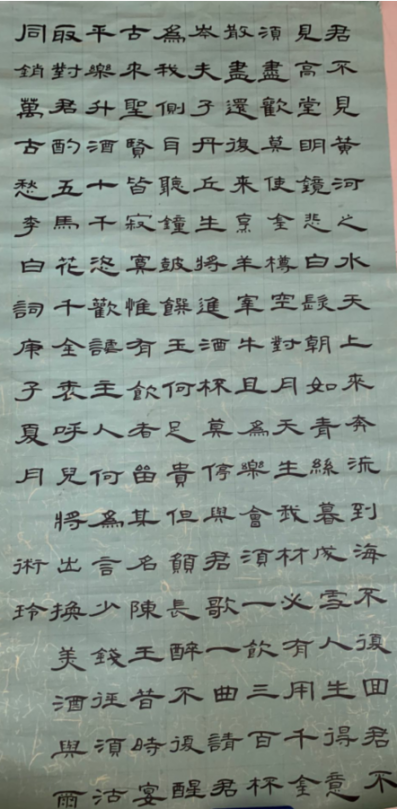 君不見黃河之水天上來奔流到海不復回君不
見高堂明鏡悲白髮朝如青絲暮成雪人生得意
須盡歡莫使金樽空對月天生我材必有用千金
散盡還復來烹羊宰牛且為樂會須一飲三百杯
岑夫子丹丘生將進酒杯莫停與君歌一曲請君
為我側耳聽鐘鼓饌玉何足貴但願長醉不復醒
古來聖賢皆寂寞惟有飲者留其名陳王昔時宴
平樂斗酒十千恣歡謔主人何為言少錢徑須沽
取對君酌五馬花千金裘呼兒將出換美酒與爾
同銷萬古愁李白詞庚子夏月 術玲